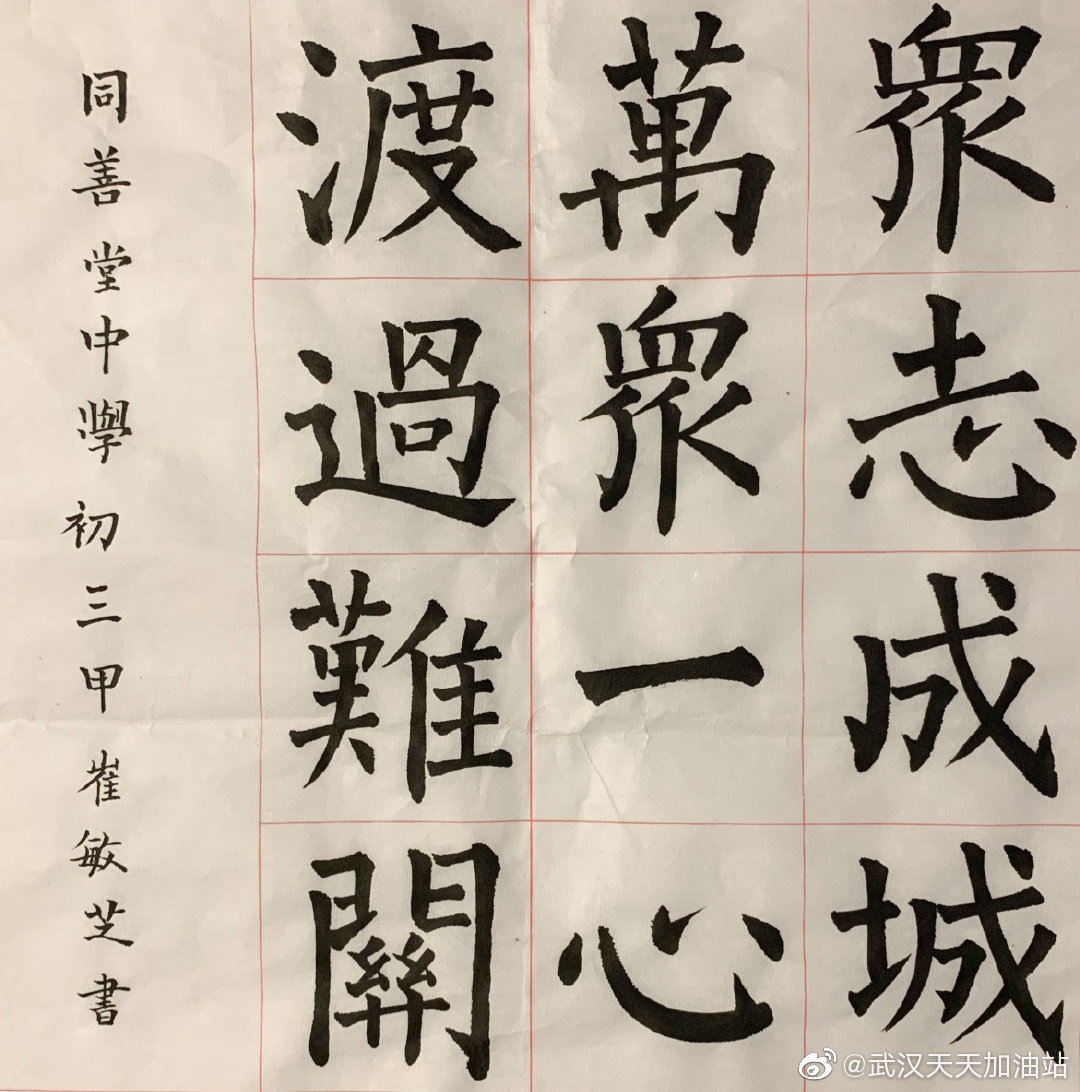 眾志成城
萬眾一心
渡過難關
同善堂中學初三甲崔敏芝書
@武汉天天加油站